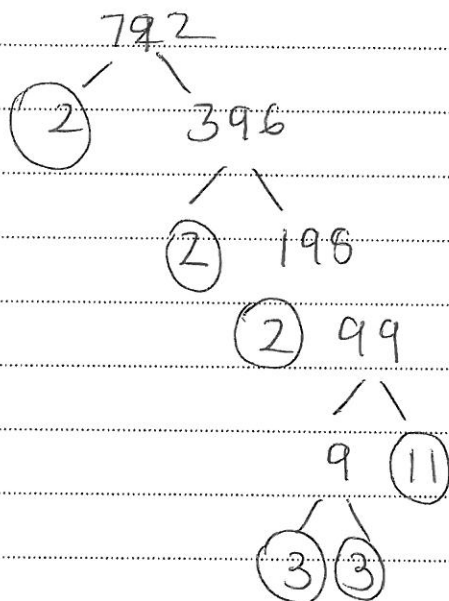 792
2 396
2 198
2 99
9 11
3 3